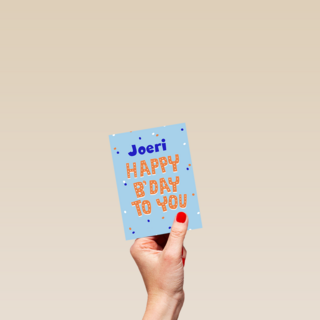 Joeri
HAPPY
B'DAY
TO YOU